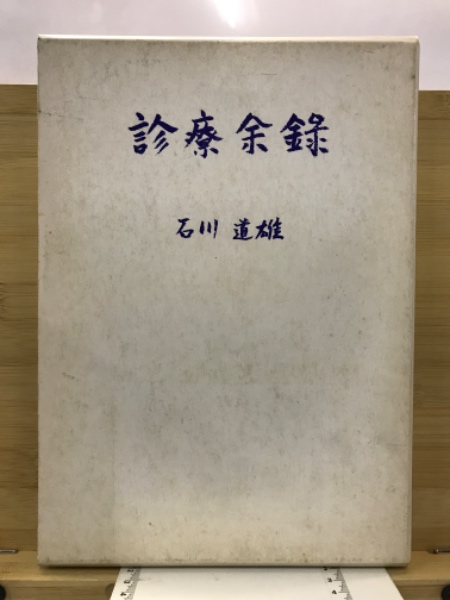 診療余録
石川 道雄